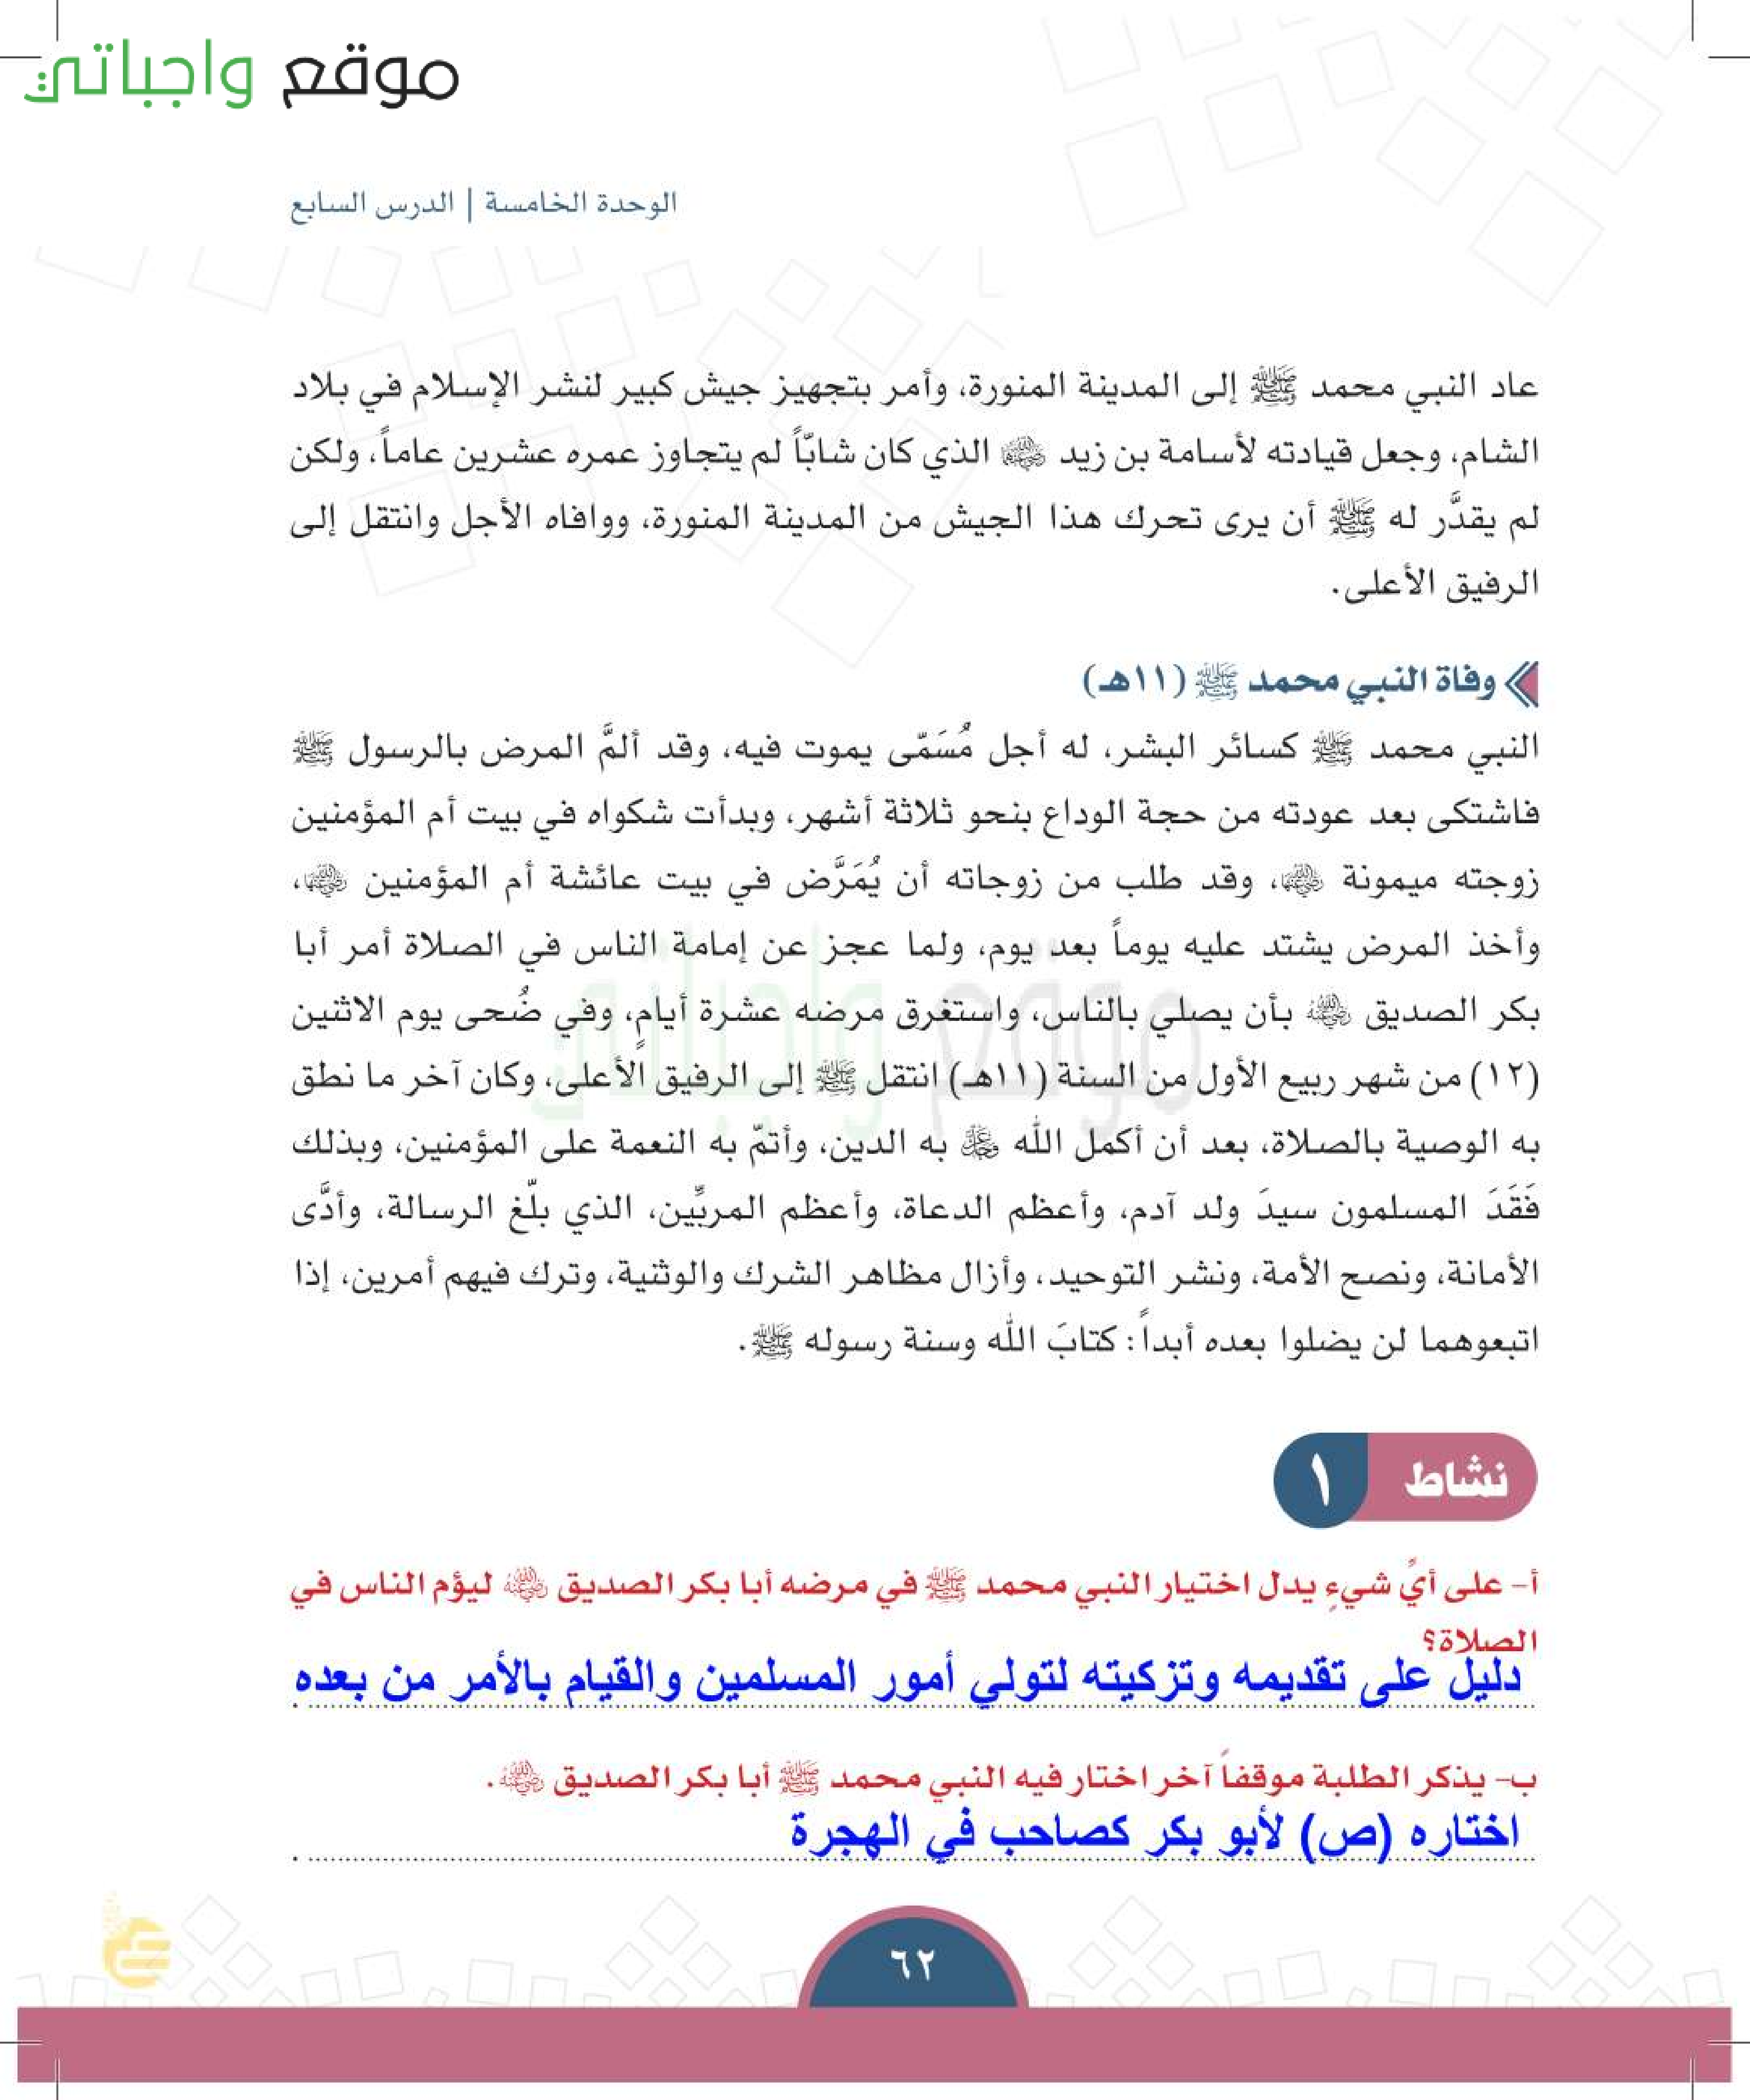 موقع واجباتي
الوحدة الخامسة | الدرس السابع
عاد النبي محمد ﷺ إلى المدينة المنورة، وأمر بتجهيز جيش كبير لنشر الإسلام في بلاد
الشام، وجعل قيادته لأسامة بن زيد رضي الله عنه الذي كان شابّاً لم يتجاوز عمره عشرين عاماً، ولكن
لم يقدَّر له ﷺ أن يرى تحرك هذا الجيش من المدينة المنورة، ووافاه الأجل وانتقل إلى
الرفيق الأعلى.
وفاة النبي محمد ﷺ (١١هـ)
النبي محمد ﷺ كسائر البشر، له أجل مُسَمّى يموت فيه، وقد ألمَّ المرض بالرسول ﷺ
فاشتكى بعد عودته من حجة الوداع بنحو ثلاثة أشهر، وبدأت شكواه في بيت أم المؤمنين
زوجته ميمونة رضي الله عنها، وقد طلب من زوجاته أن يُمَرَّض في بيت عائشة أم المؤمنين رضي الله عنها،
وأخذ المرض يشتد عليه يوماً بعد يوم، ولما عجز عن إمامة الناس في الصلاة أمر أبا
بكر الصديق رضي الله عنه بأن يصلي بالناس، واستغرق مرضه عشرة أيامٍ، وفي ضُحى يوم الاثنين
(١٢) من شهر ربيع الأول من السنة (١١هـ) انتقل ﷺ إلى الرفيق الأعلى، وكان آخر ما نطق
به الوصية بالصلاة، بعد أن أكمل الله عز وجل به الدين، وأتمّ به النعمة على المؤمنين، وبذلك
فَقَدَ المسلمون سيدَ ولد آدم، وأعظم الدعاة، وأعظم المربِّين، الذي بلّغ الرسالة، وأدَّى
الأمانة، ونصح الأمة، ونشر التوحيد، وأزال مظاهر الشرك والوثنية، وترك فيهم أمرين، إذا
اتبعوهما لن يضلوا بعده أبداً: كتابَ الله وسنة رسوله ﷺ.
نشاط ١
أ- على أيِّ شيءٍ يدل اختيار النبي محمد ﷺ في مرضه أبا بكر الصديق رضي الله عنه ليؤم الناس في
الصلاة؟
دليل على تقديمه وتزكيته لتولي أمور المسلمين والقيام بالأمر من بعده
ب- يذكر الطلبة موقفاً آخر اختار فيه النبي محمد ﷺ أبا بكر الصديق رضي الله عنه.
اختاره (ص) لأبو بكر كصاحب في الهجرة
٦٢